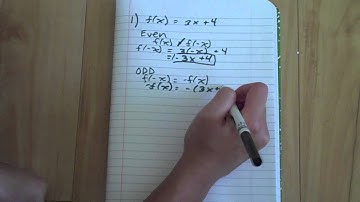 1) f(x) = 3x + 4
Even
f(x) ≠ f(-x)
f(-x) = 3(-x) + 4
= -3x + 4
ODD
f(-x) = -f(x)
-f(x) = -(3x+